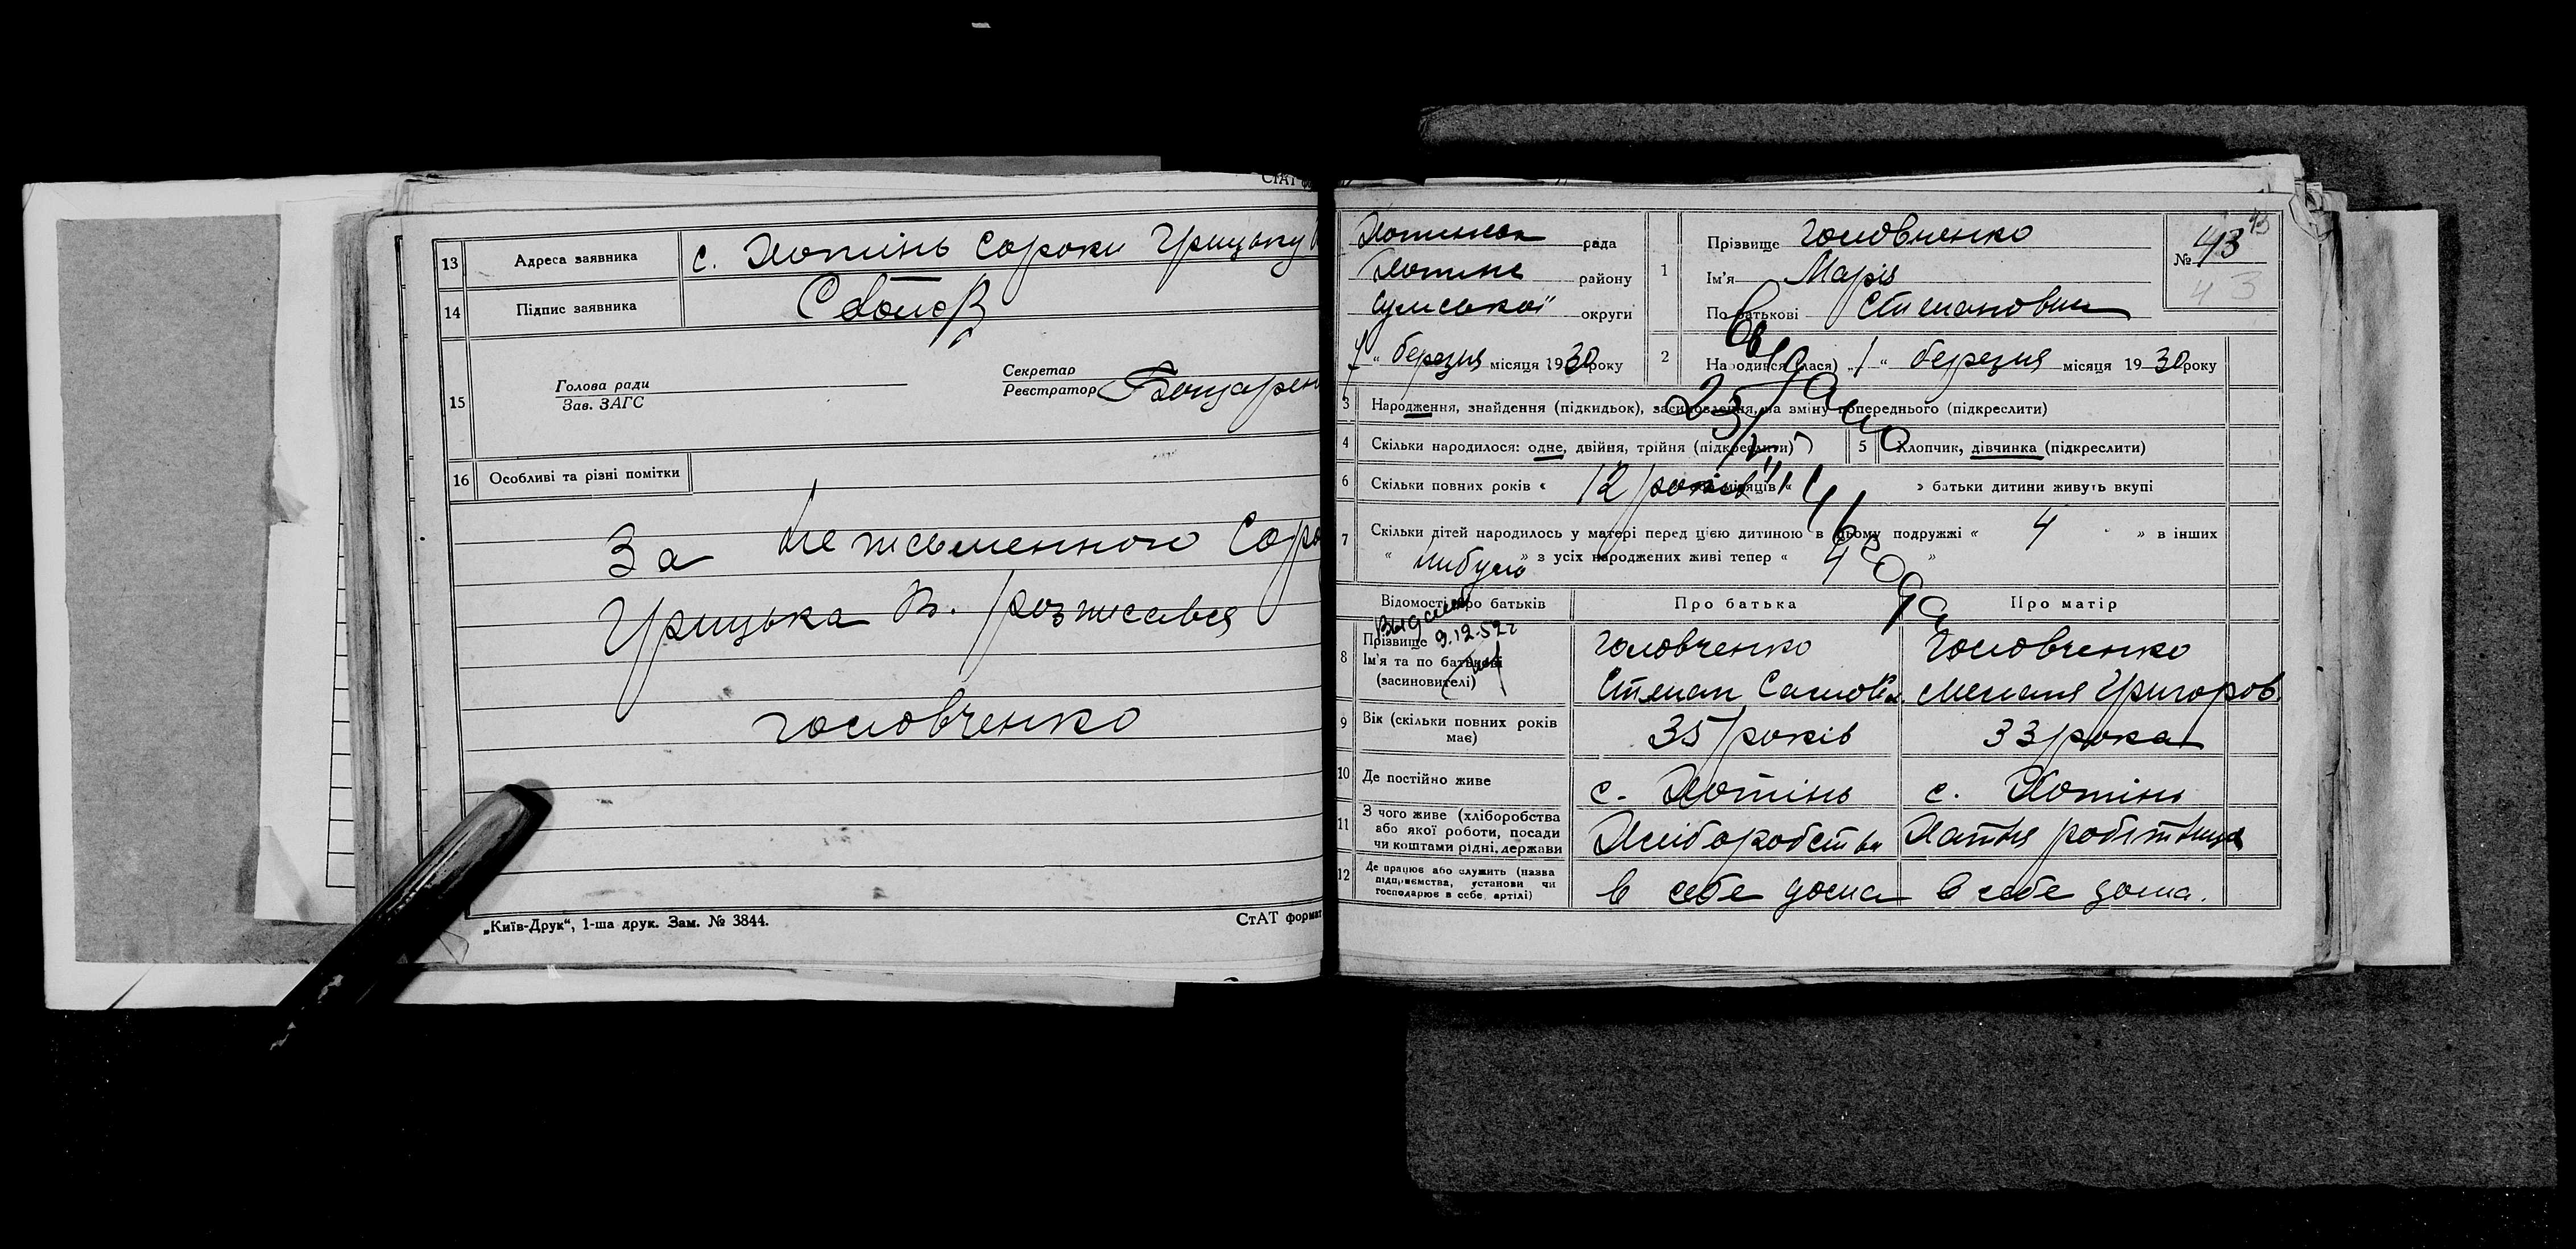 13 Адреса заявника с. Хотінь Сороки Грицьку
14 Підпис заявника
15 Голова ради
Зав. ЗАГС
Секретар
Реєстратор
16 Особливі та різні помітки
За неписьменного Соро
Грицька В. розписався
Головченко
„Київ-Друк“, 1-ша друк. Зам. № 3844.
СтАТ формат
рада
Хотінь району
Сумської округи
1 „ березня місяця 1930 року
1 Прізвище Головченко
Ім'я Марія
По батькові Степановна
№ 43
43
2 Народився (лася) „ 1 “ березня місяця 1930 року
3 Народження, знайдення (підкидьок), засиновлення, на зміну попереднього (підкреслити)
4 Скільки народилося: одне, двійня, трійня (підкреслити)
5 Хлопчик, дівчинка (підкреслити)
6 Скільки повних років « 12 років місяців « » батьки дитини живуть вкупі
7 Скільки дітей народилось у матері перед цією дитиною в цьому подружжі « 4 » в інших
« небуло » з усіх народжених живі тепер « 4 »
Відомості про батьків Про батька Про матір
9.12.52 г
8 Прізвище Головченко Головченко
Ім'я та по батькові Степан Меланя Григоров.
(засиновителі)
9 Вік (скільки повних років має) 35 років 33 рока
10 Де постійно живе с. Хотінь с. Хотінь
11 З чого живе (хліборобства
або якої роботи, посади
чи коштами рідні, держави Хліборобства Хатня робітниця
12 Де працює або служить (назва
підприємства, установи чи
господарює в себе, артілі) в себе дома в себе дома.